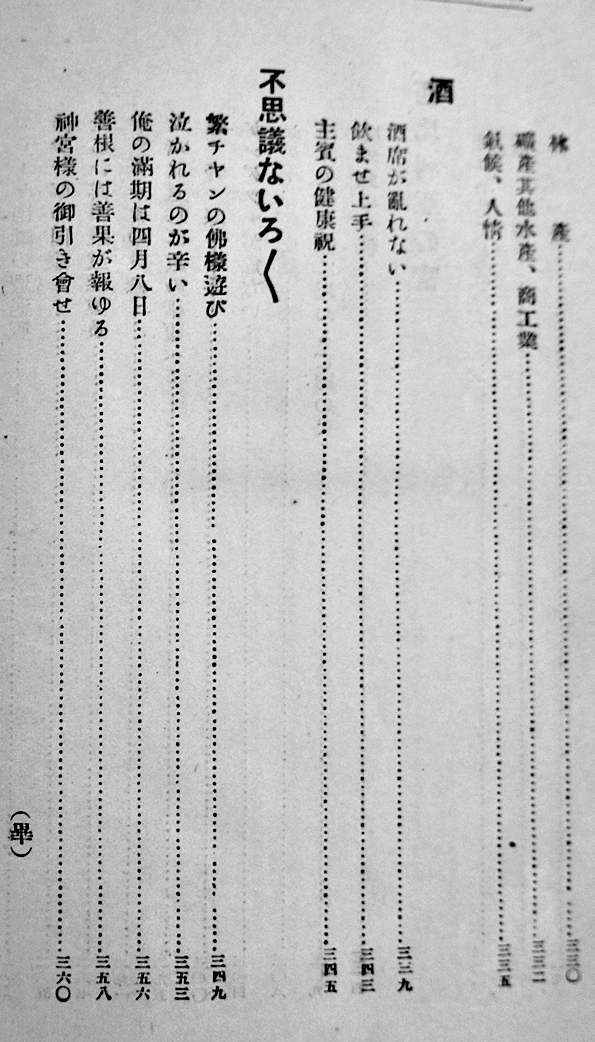 林産……三三〇
礦產其他水產、商工業……三三二
氣候、人情……三三五
酒
酒席が亂れない……三三九
飮ませ上手……三四三
主賓の健康祝……三四五
不思議ないろ〱
繁チヤンの佛樣遊び……三四九
泣かれるのが辛い……三五三
俺の滿期は四月八日……三五六
善根には善果が報ゆる……三五八
神宮樣の御引き會せ……三六〇
(畢)